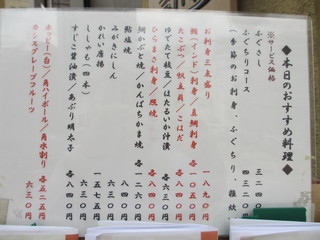 ◆本日のおすすめ料理◆
※サービス価格
ふぐさし 三二四〇円
ふぐちりコース 四三二〇円
(季節のお刺身、ふぐちり、雑炊
お刺身三点盛り 一八九〇円
鯛(インド)刺身/真鯛刺身 各一〇五〇円
たこぶつ/帆立貝/こはだ 各八四〇円
ゆでたて枝豆/ほたるいか汁漬 各六三〇円
ひらまさ刺身/照焼 各八四〇円
鯛かぶと焼/かんぱちかま焼 各八四〇円
鮎塩焼 八四〇円
みがきにしん 六三〇円
かれい唐揚 一五七五円
ししゃも(四本) 六三〇円
すじこ醤油漬/あぶり明太子 各八四〇円
ホッピー(白)/角ハイボール/角水割り 各五二五円
カシスグレープフルーツ 六三〇円